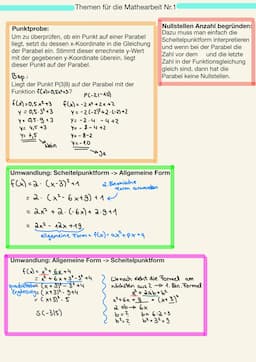 Themen für die Mathearbeit Nr.1
Punktprobe:
Um zu überprüfen, ob ein Punkt auf einer Parabel
liegt, setzt du dessen x-Koordinate in die Gleichung
der Parabel ein. Stimmt dieser errechnete y-Wert
mit der gegebenen y-Koordinate überein, liegt
dieser Punkt auf der Parabel.
Bsp.:
Liegt der Punkt P(3|8) auf der Parabel mit der
Funktion f(x)=0,5x²+3?
P(-2|-10)
f(x)=0,5x²+3 f(x)=-2x²+2x+2
y=0,5·3²+3 y=-2(-2)²+2·(-2)+2
y=0,5·9+3 y=-2·4-4+2
y=4,5+3 y=-8-4+2
y=-8-2
y=-10
nein
Ja
Nullstellen Anzahl begründen:
Dazu muss man einfach die
Scheitelpunktform interpretieren
und wenn bei der Parabel die
Zahl vor dem und die letzte
Zahl in der Funktionsgleichung
gleich sind, dann hat die
Parabel keine Nullstellen.
Umwandlung: Scheitelpunktform -> Allgemeine Form
f(x)=2·(x-3)²+1
2. Binomische
Formel anwenden
=2·(x²-6x+9)+1
=2x²+2·(-6x)+2·9+1
=2x²-12x+19
allgemeine Form = f(x)=ax²+px+q
Umwandlung: Allgemeine Form -> Scheitelpunktform
f(x)=x²+6x+4
=x²+6x+3²-3²+4
quadratische
Ergänzung
=(x+3)²-3²+4
=(x+3)²-9+4
=(x+3)²-5
S(-3|5)